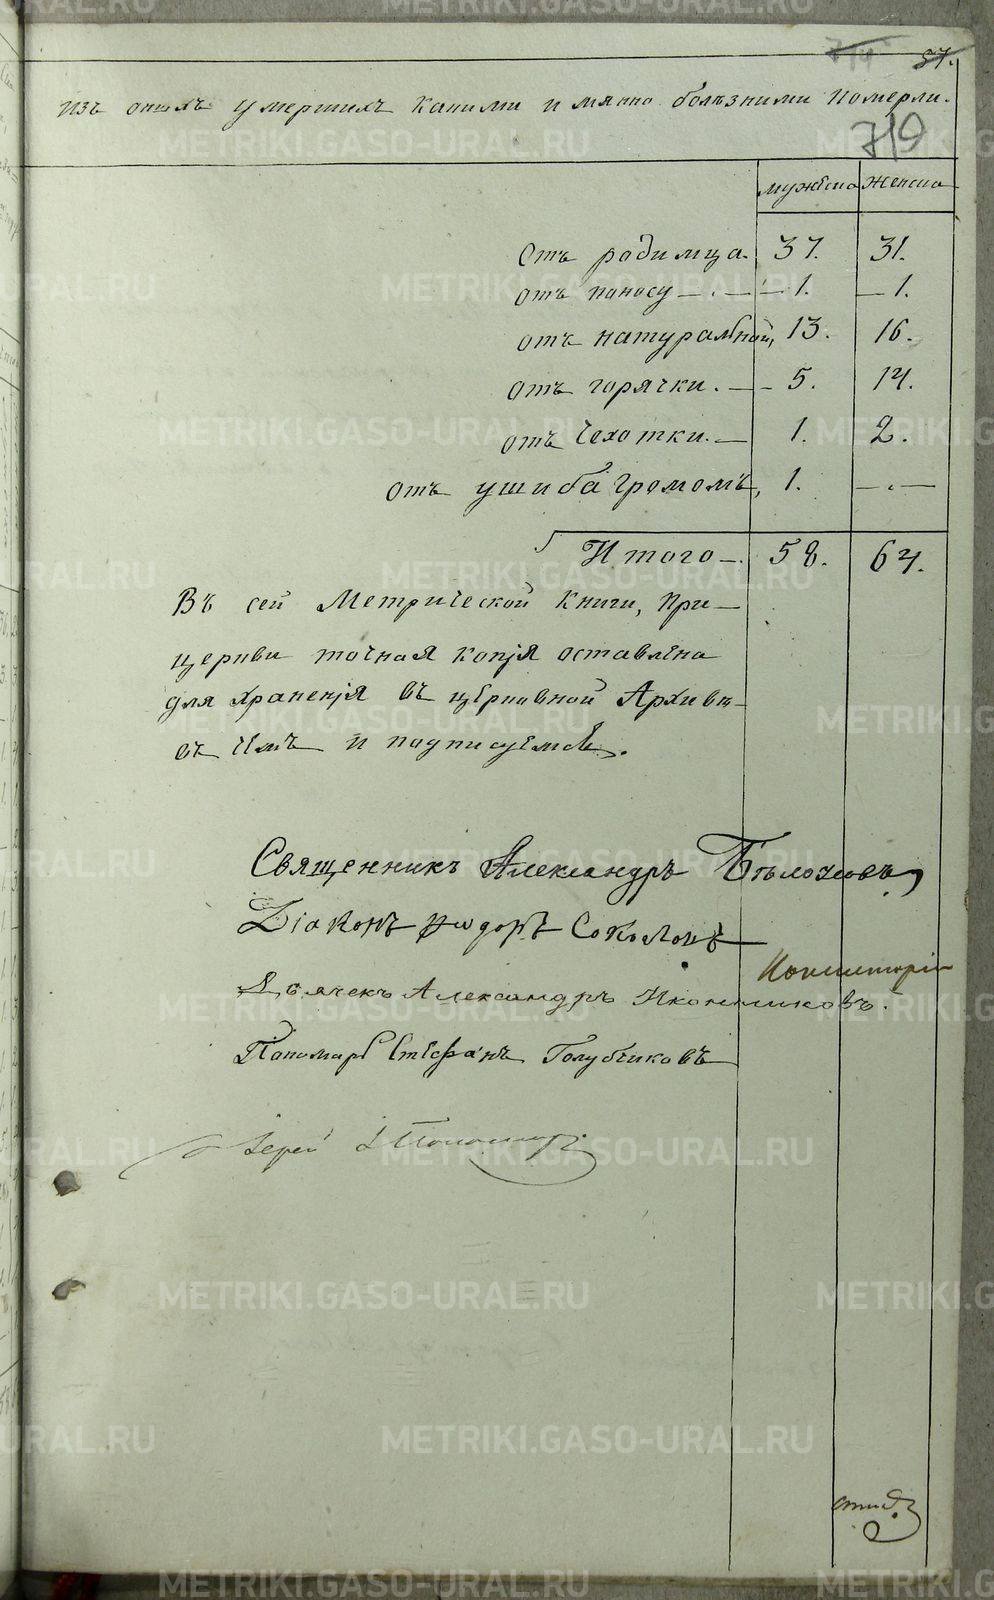 57.
изъ оныхъ умершихъ какими имянно болѣзними померли.
719
мужеска женска
отъ родимца. 37. 31.
отъ поносу — 1. — 1.
отъ натуральной, 13. 16.
отъ горячки. — 5. 14.
отъ чехотки. — 1. 2.
отъ ушиба громомъ, 1. —
Итого — 58. 64.
Въ сей Метрической книги, при
церкви точная копія оставлена
для храненія въ церковной Архивѣ
въ чемъ и подписуемся.
Священникъ Александръ
Діаконъ Соколовъ
Дьячекъ Александръ Иконниковъ.
Пономарь Стефанъ Голубчиковъ
Іерей
METRIKI.GASO-URAL.RU